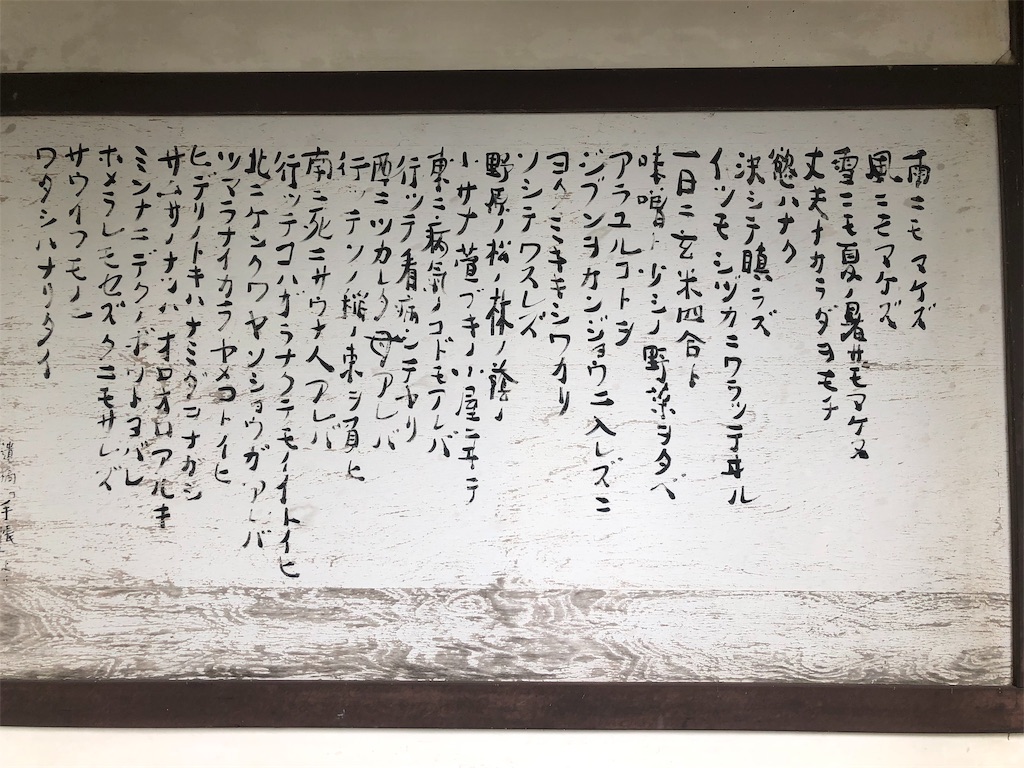 雨ニモマケズ
風ニモマケズ
雪ニモ夏ノ暑サモマケヌ
丈夫ナカラダヲモチ
慾ハナク
決シテ瞋ラズ
イツモシヅカニワラッテヰル
一日ニ玄米四合ト
味噌ト少シノ野菜ヲタベ
アラユルコトヲ
ジブンヲカンジョウニ入レズニ
ヨクミキキシワカリ
ソシテワスレズ
野原ノ松ノ林ノ蔭ノ
小サナ萓ブキノ小屋ニヰテ
東ニ病気ノコドモアレバ
行ッテ看病シテヤリ
西ニツカレタ母アレバ
行ッテソノ稲ノ束ヲ負ヒ
南ニ死ニサウナ人アレバ
行ッテコハガラナクテモイイトイヒ
北ニケンクヮヤソショウガアレバ
ツマラナイカラヤメロトイヒ
ヒデリノトキハナミダヲナガシ
サムサノナツハオロオロアルキ
ミンナニデクノボウトヨバレ
ホメラレモセズクニモサレズ
サウイフモノニ
ワタシハナリタイ
「手帳」より